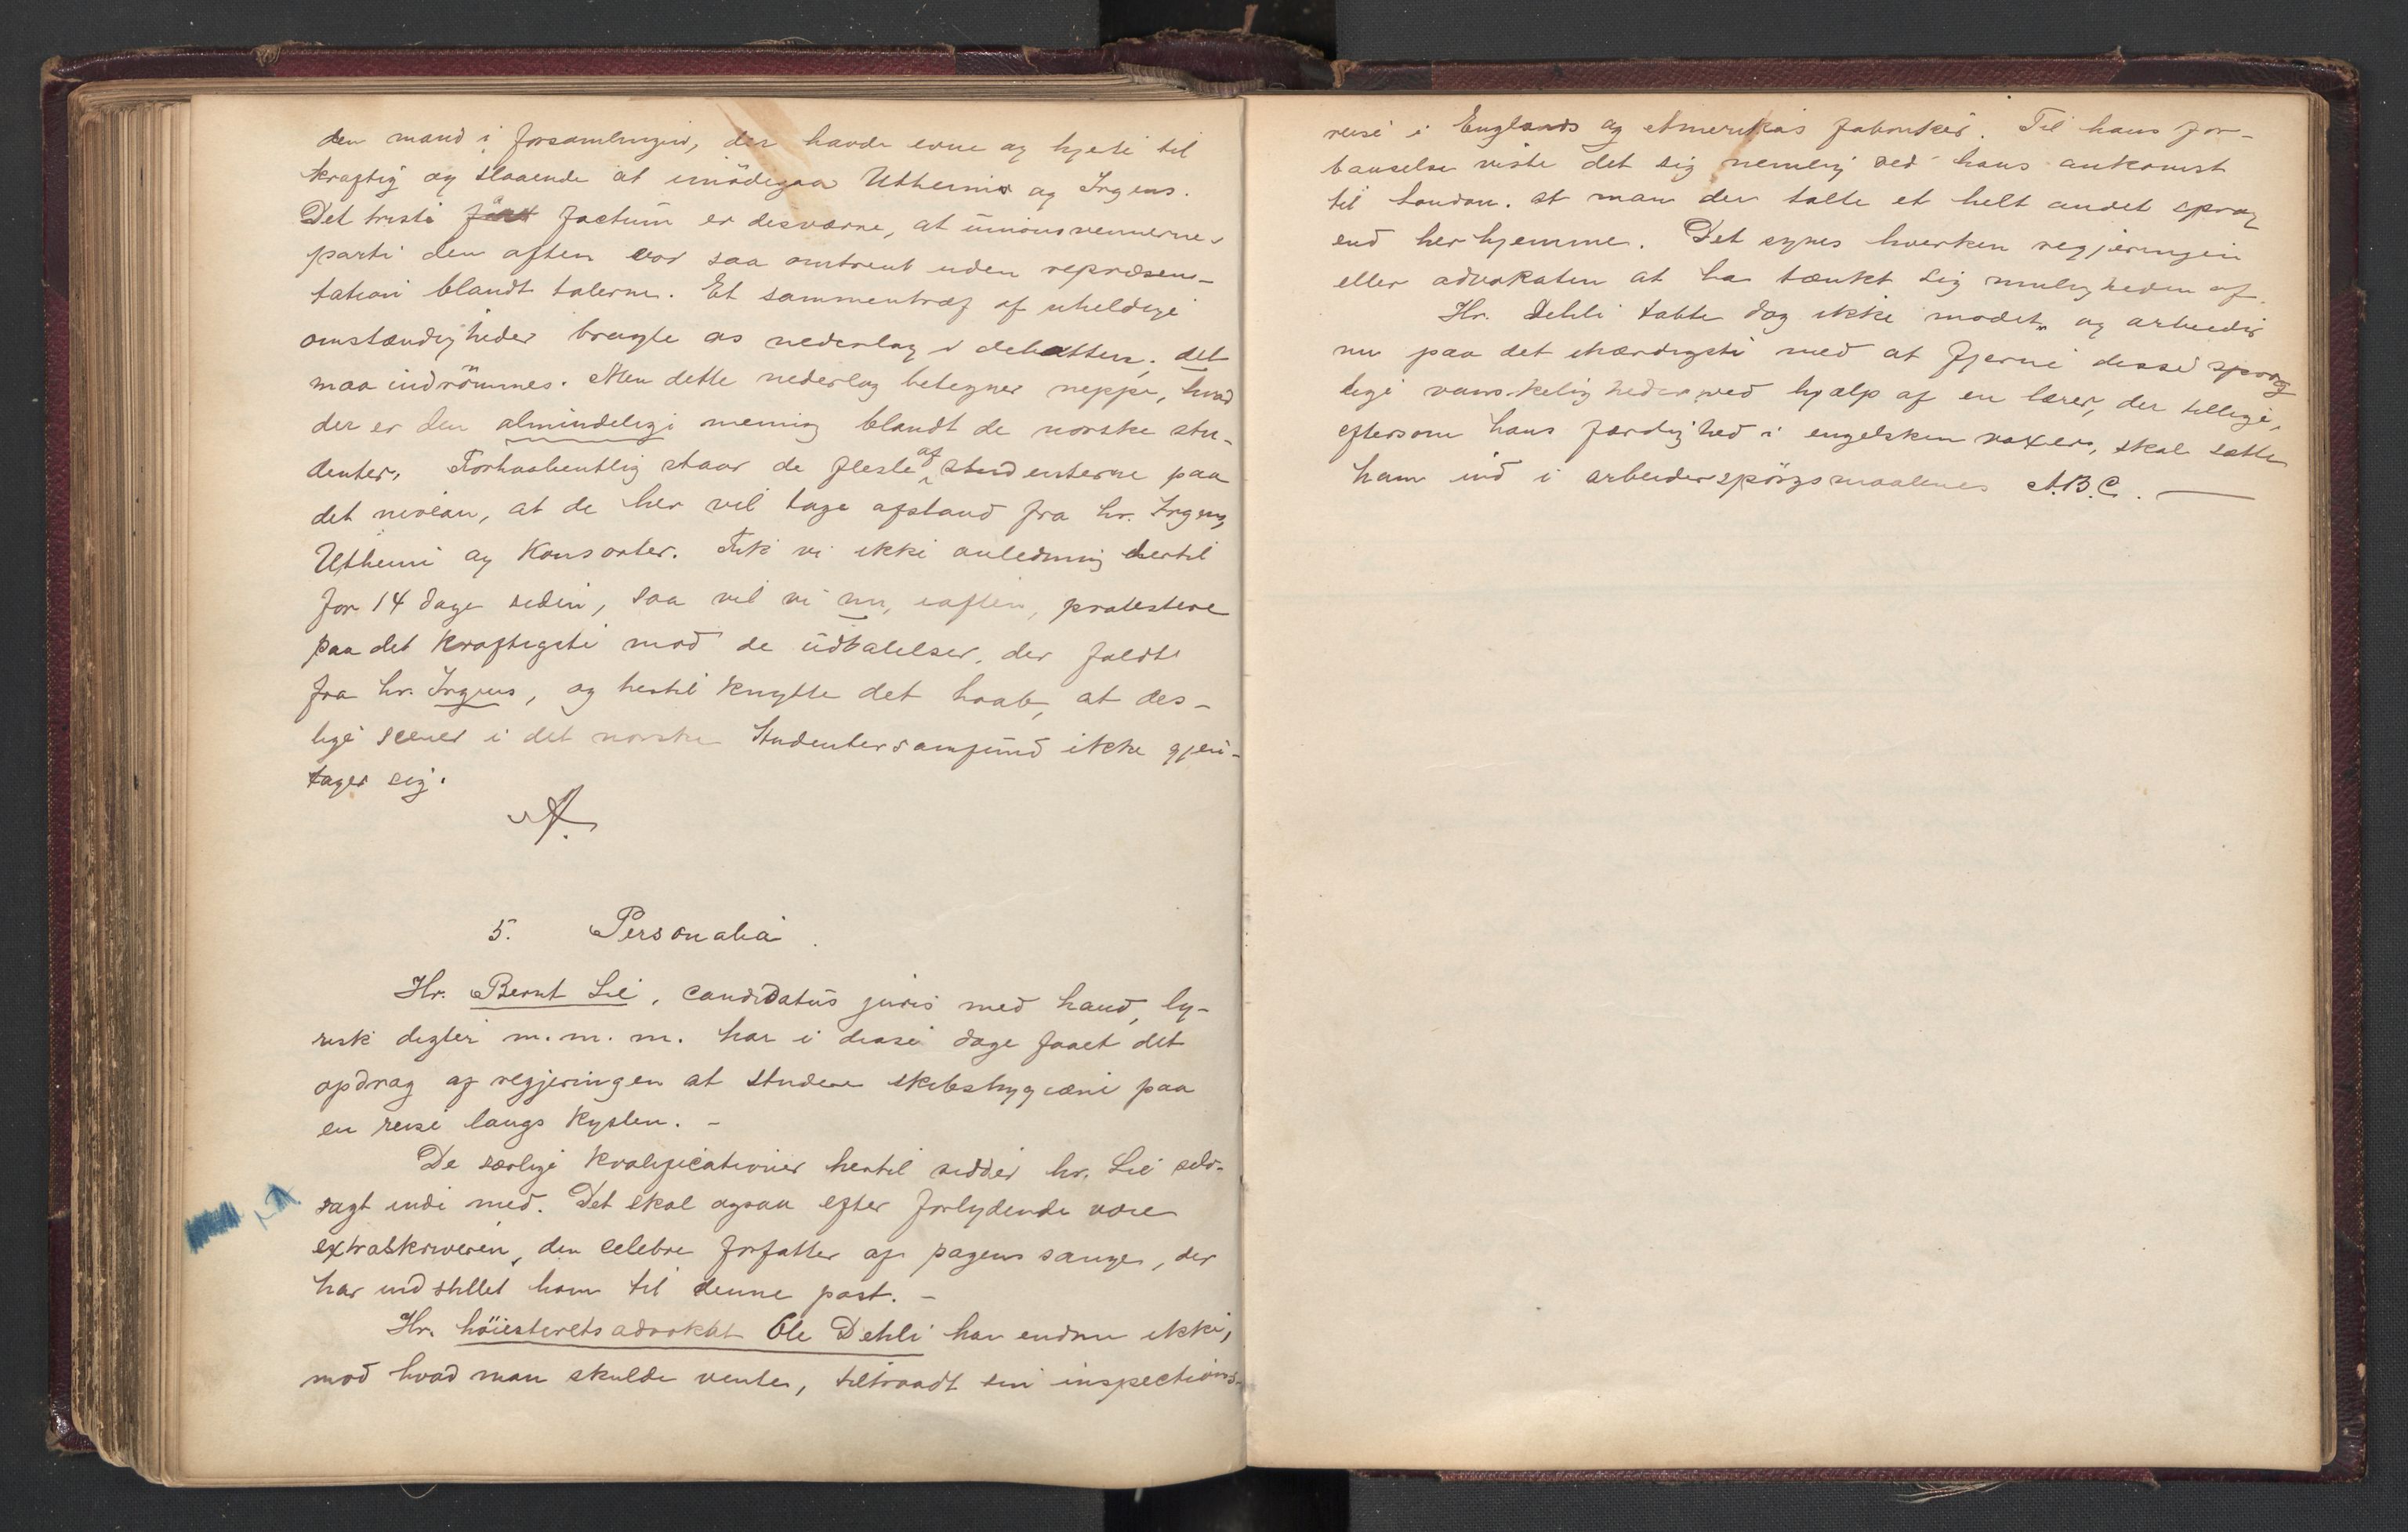 den mand i forsamlingen, der havde evne og hjerte til
kraftig og slaaende at imödegaa Utheim og Irgens.
Det triste factum er desværre, at unionsvennernes
parti den aften var saa omtrent uden repræsen-
tation blandt talerne. Et sammentræf af uheldige
omstændigheder bragte os nederlag i debatten; det
maa indrömmes. Men dette nederlag betegner neppe, hvad
der er den almindelige mening blandt de norske stu-
denter. Forhaabentlig staar de fleste af studenterne paa
det niveau, at de her vil tage afstand fra hr. Irgens,
Utheim og Konsorter. Fik vi ikke anledning dertil
for 14 dage siden, saa vil vi nu, iaften, protestere
paa det kraftigste mod de udtalelser, der faldt
fra hr. Irgens, og hertil knytte det haab, at des-
lige scener i det norske Studentersamfund ikke gjen-
tager sig.
A.
5. Personalia.
Hr. Bernt Lie, candidatus juris med haud, ly-
risk digter m. m. m. har i disse dage faaet det
opdrag af regjeringen at studere skibshygiæne paa
en reise langs kysten. –
De særlige kvalificationer hertil sidder hr. Lie selv-
sagt inde med. Det skal ogsaa efter forlydende være
extraskriveren, den celebre forfatter af pagens sange, der
har indstillet ham til denne post. –
Hr. höiesteretsadvokat Ole Dehli har endnu ikke,
mod hvad man skulde vente, tiltraadt sin inspections-
reise i Englands og Amerikas fabriker. Til hans for-
bauselse viste det sig nemlig ved hans ankomst
til London, at man der talte et helt andet sprog
end her hjemme. Det synes hverken regjeringen
eller advokaten at ha tænkt sig muligheden af.
Hr. Dehli tabte dog ikke modet, og arbeider
nu paa det ihærdigste med at fjerne disse sprog
lige vanskeligheder ved hjælp af en lærer, der tillige,
eftersom hans færdighed i engelsken voxer, skal sætte
ham ind i arbeiderspörgsmaalenes A.B.C. —